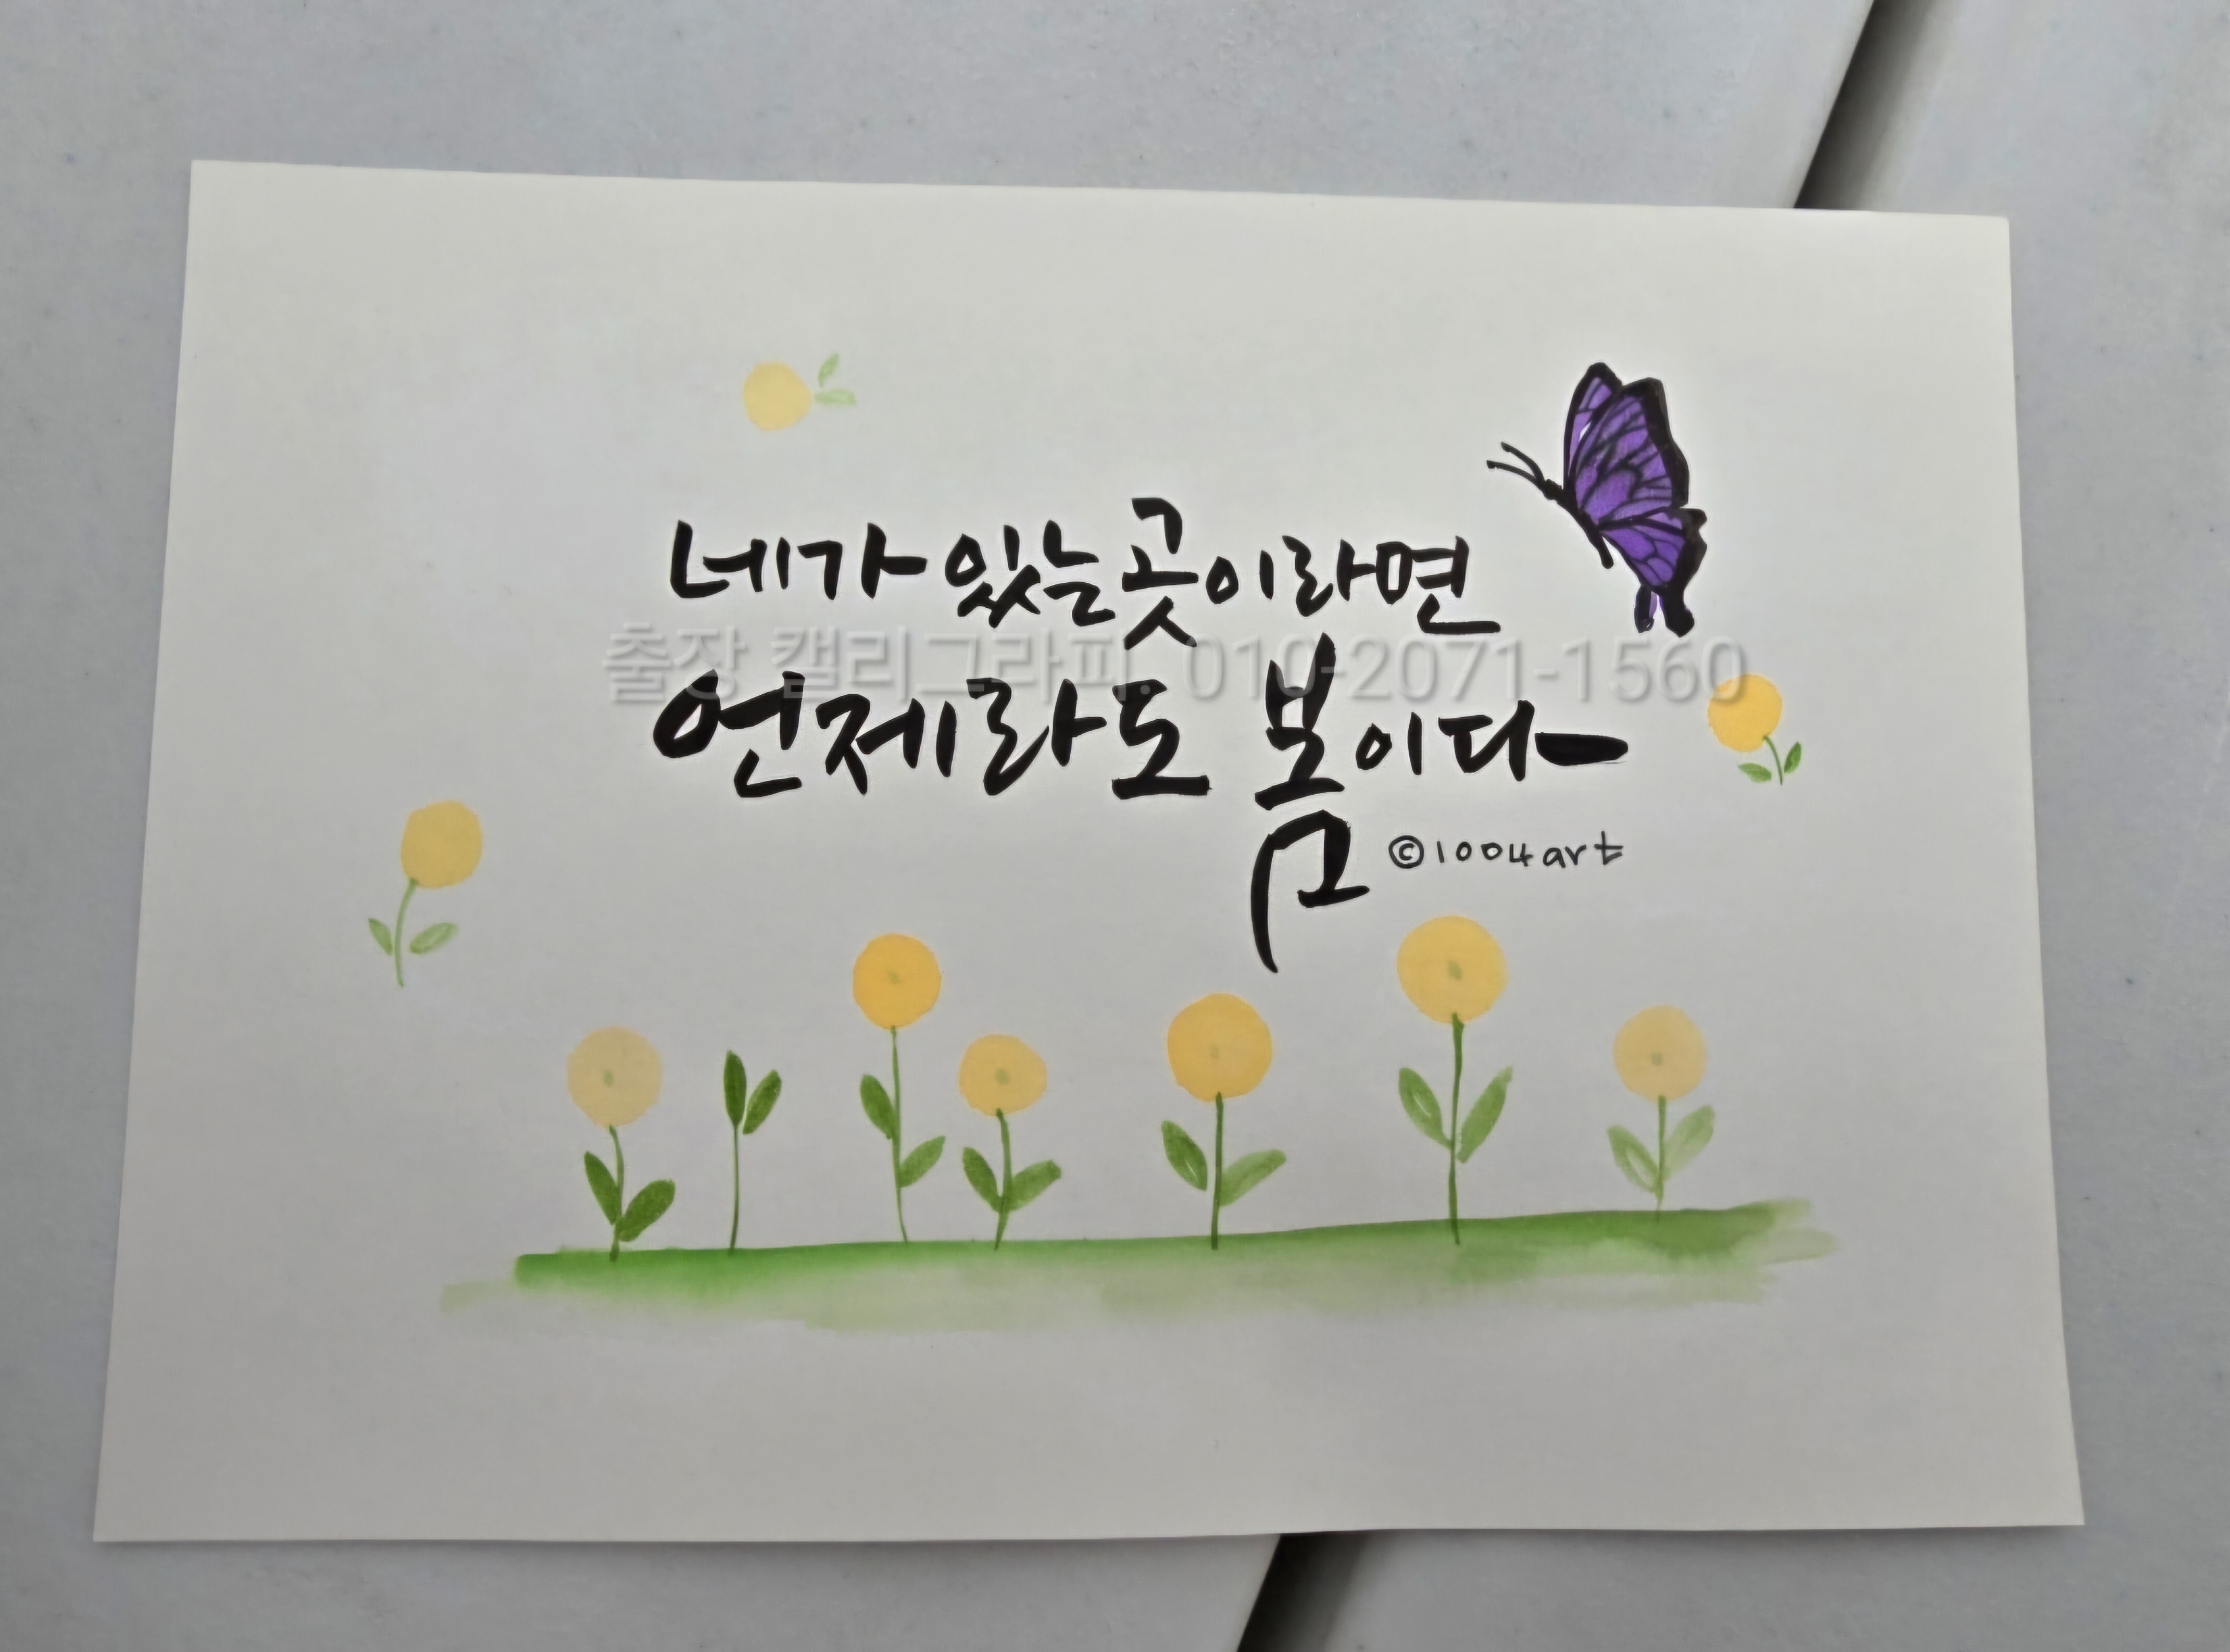 네가 있는 곳이라면
출장 캘리그라피. 010-2071-1560
언제라도 봄이다
©1004art